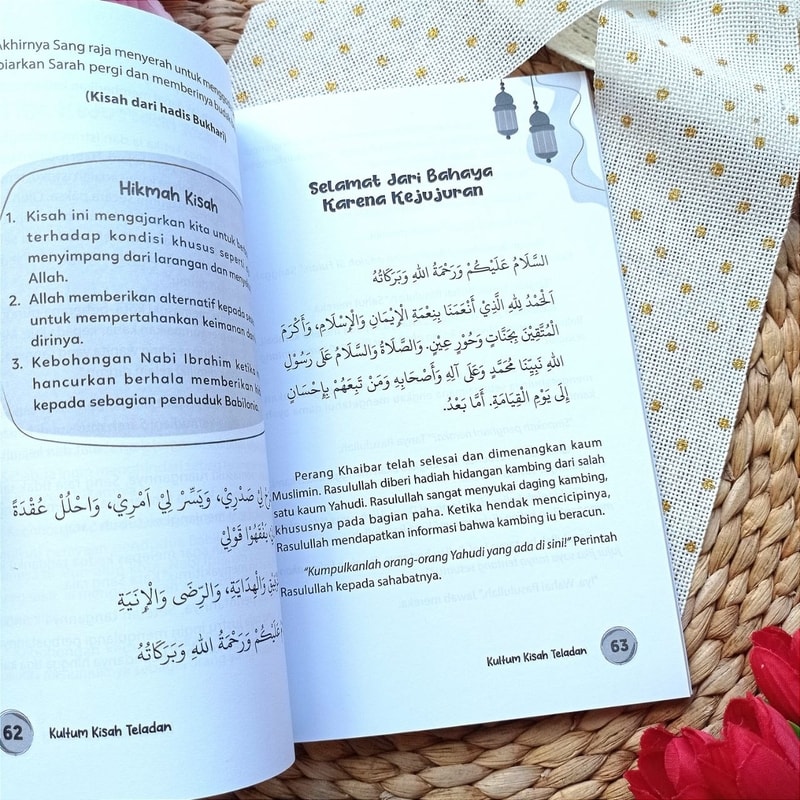 Akhirnya Sang raja menyerah untuk
biarkan Sarah pergi dan memberinya
(Kisah dari hadis Bukhari)
Hikmah Kisah
1. Kisah ini mengajarkan kita untuk
terhadap kondisi khusus
menyimpang dari larangan dan
Allah.
2. Allah memberikan alternatif kepada
untuk mempertahankan keimanan
dirinya.
3. Kebohongan Nabi Ibrahim ketika
hancurkan berhala memberikan
kepada sebagian penduduk Babilonia.
لِيْ صَدْرِيْ، وَيَسِّرْ لِيْ اَمْرِيْ، وَاحْلُلْ عُقْدَةً
يَفْقَهُوْا قَوْلِيْ
وَالْهِدَايَةِ، وَالرِّضَى وَالْإِنَيَةِ
عَلَيْكُمْ وَرَحْمَةُ اللهِ وَبَرَكَاتُهُ
62 Kultum Kisah Teladan
Selamat dari Bahaya
Karena Kejujuran
السَّلَامُ عَلَيْكُمْ وَرَحْمَةُ اللهِ وَبَرَكَاتُهُ
الْحَمْدُ لِلهِ الَّذِي أَنْعَمَنَا بِنِعْمَةِ الْإِيْمَانِ وَالْإِسْلَامِ، وَأَكْرَمَ
الْمُتَّقِيْنَ بِجَنَّاتٍ وَحُوْرٍ عِيْنٍ. وَالصَّلَاةُ وَالسَّلَامُ عَلَى رَسُوْلِ
اللهِ نَبِيِّنَا مُحَمَّدٍ وَعَلَى آلِهِ وَأَصْحَابِهِ وَمَنْ تَبِعَهُمْ بِإِحْسَانٍ
إِلَى يَوْمِ الْقِيَامَةِ. أَمَّا بَعْدُ.
Perang Khaibar telah selesai dan dimenangkan kaum
Muslimin. Rasulullah diberi hadiah hidangan kambing dari salah
satu kaum Yahudi. Rasulullah sangat menyukai daging kambing,
khususnya pada bagian paha. Ketika hendak mencicipinya,
Rasulullah mendapatkan informasi bahwa kambing iu beracun.
"Kumpulkanlah orang-orang Yahudi yang ada di sini!" Perintah
Rasulullah kepada sahabatnya.
Kultum Kisah Teladan 63